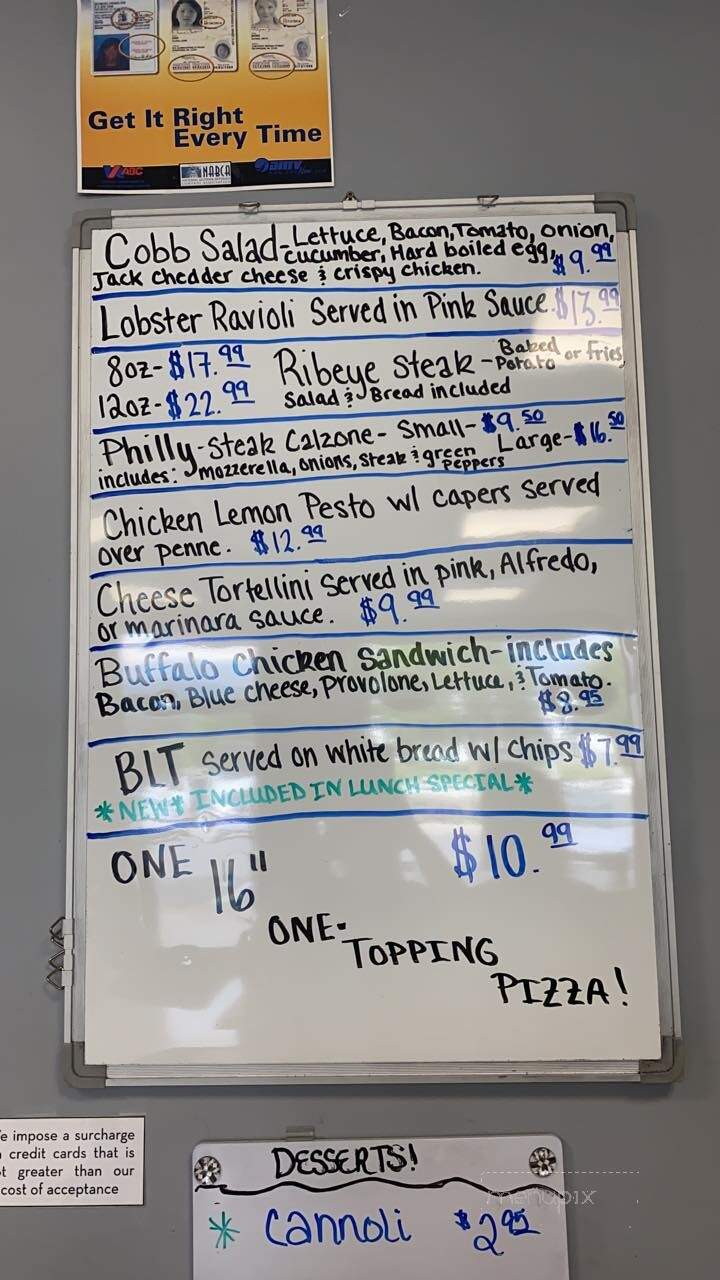 Get It Right
Every Time
ABC
NABCA
Cobb Salad-Lettuce, Bacon, Tomato, onion,
cucumber, Hard boiled egg,
Jack chedder cheese & crispy chicken. $9.99
Lobster Ravioli Served in Pink Sauce. $13.99
8oz-$17.99 Ribeye Steak - Baked Potato or fries,
12oz-$22.99 Salad & Bread included
Philly-Steak Calzone- Small-$9.50
includes: mozzerella, onions, Steak & green peppers Large-$16.50
Chicken Lemon Pesto w/ capers served
over penne. $12.99
Cheese Tortellini served in pink, Alfredo,
or marinara sauce. $9.99
Buffalo Chicken Sandwich-includes
Bacon, Blue cheese, Provolone, Lettuce, & Tomato.
$8.95
BLT served on white bread w/ chips $7.99
*NEW* INCLUDED IN LUNCH SPECIAL*
ONE 16" $10.99
ONE-
TOPPING
PIZZA!
e impose a surcharge
credit cards that is
t greater than our
cost of acceptance
DESSERTS!
menupix
* Cannoli $2.95